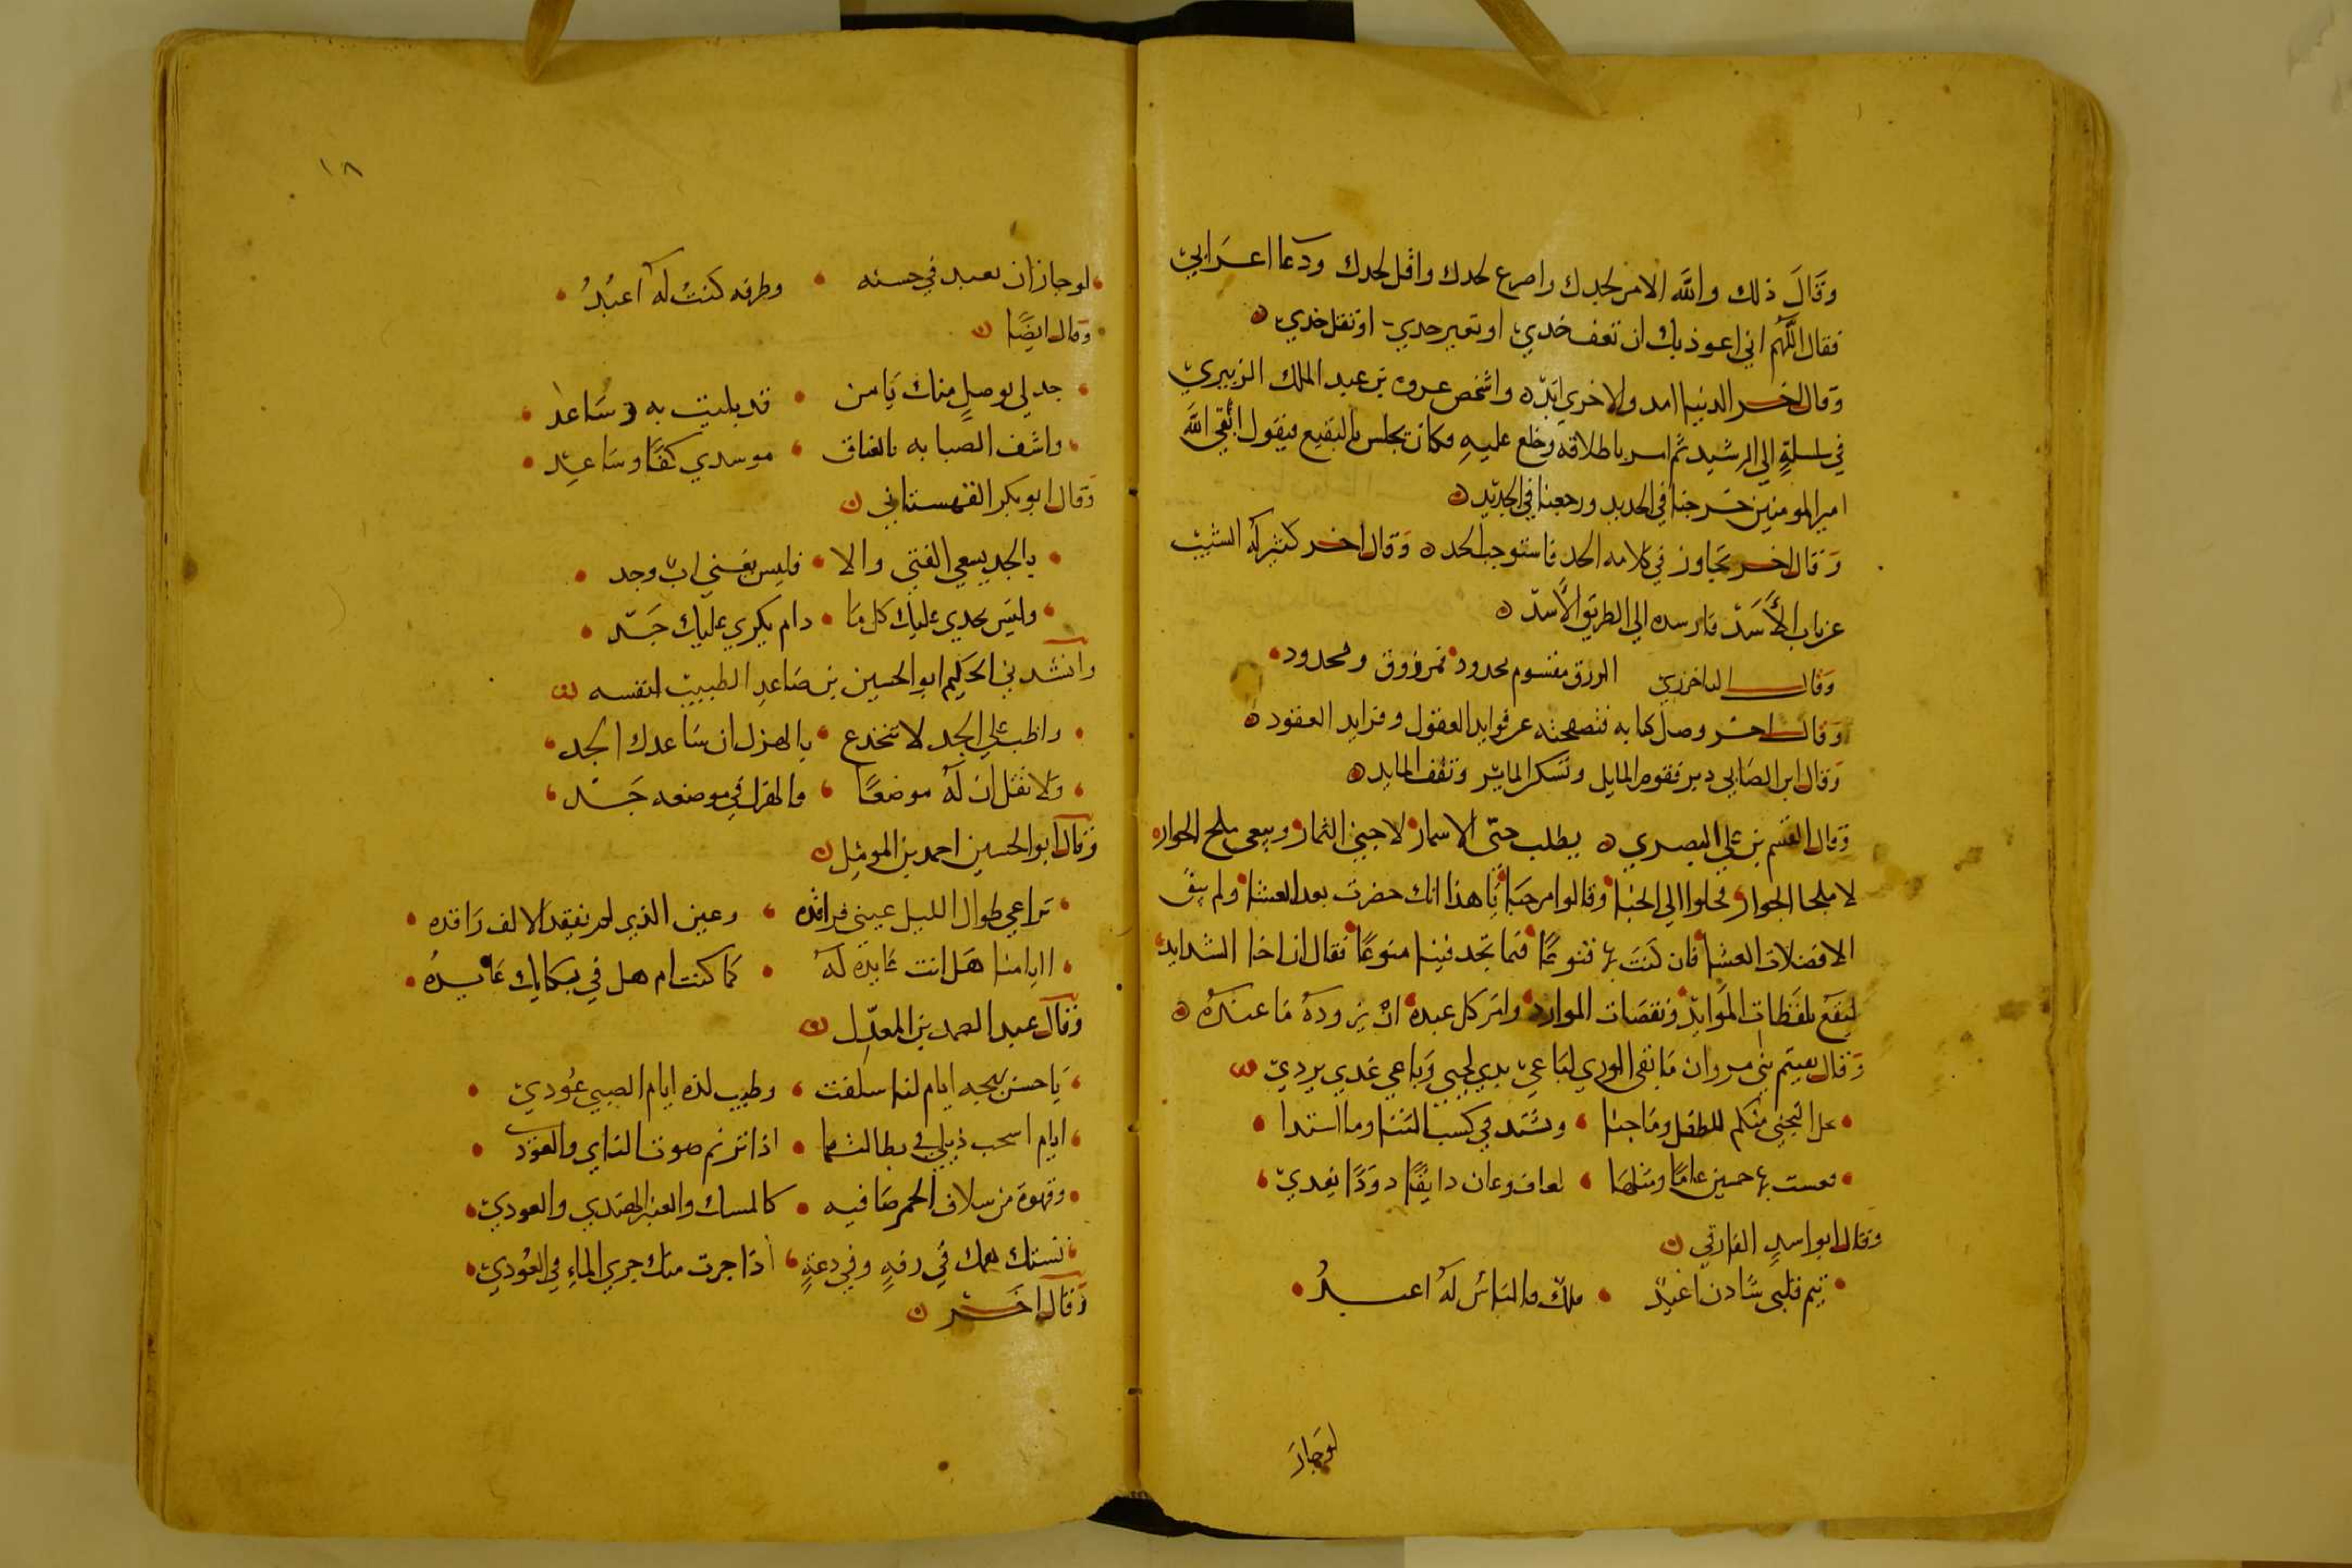 وقَالَ ذلك والله الامر لجدك واصرع لحدك واقل لجدك ودعا اعرابي
فقال اللهم اني اعوذ بك ان تعف خدي او تعير حدي او تقل خدي
وقال اخر الدنيا امد والاخري ابد واشخص عروه بن عبد الملك الزبيري
في سلسلةٍ الي الرشيد ثم امر باطلاقه وخلع عليهِ وكان يجلس بالبقيع فيقول ابقي الله
امير المومنين خرجنا في الحديد ورجعنا في الجديد
وقال اخر تجاوز في كلامه الحد فاستوجب الحد وقال اخر كثير له الشبيب
عزباب الأسَدّ فارسده الي الطريق الأسدّ
وقال الباخرزي الرزق مقسوم محدود فمرزوق ومحدود
وقال اخر وصل كتابه فتصفحته عن فوايد العقول وفرايد العقود
وقال ابن الصابي دبر فقوم المايل وتسكر المايـر وتقف المايد
وقال القسم بن علي البصري يطلب جني الاسمار لا جني الثمار ويبغي ملح الحوار
لا ملحا الجوار فحلوا الي الحبا وقالوا مرحبا يا هذا انك حضرت بعد العشا ولم يبق
الا فضلات العشا فان كنت بها قنوعًا فما تجد فينا منوعًا فقال ان اخا الشدايد
ليقنع بلفظات الموايد ونقصات الموارد وامر كل عبده ان يزوده ما عنده
وقال بعيتم بني مروان ما بقي الوري لباعي يدي لجبي وباعي غدي بردي
عل التجني منكم للطفل وما جنا وشتد في كسب الثنا وما استدا
بها حسين عامًا ومثلها دايقًا دودًا يغدي
وقال ابو اسد الفارقي
تيم قلبي شادن اغيد ملك فالناس له اعبد
لو جاز
١٨
لو جاز ان يعبد في حسنه وظرفه كنت له اعبُدُ
وقال ايضًا
جد لي بوصلٍ منك يا من قد بليت به وساعد
واشف الصبابه بالعناق موسدي كفًا وساعد
وقال ابو بكر القهستاني
بالجد يسعي الفتي والا فليس يغني اب وجد
وليس يجدي عليك كل ما دام يكري عليك جَدّ
وانشدني الحكيم ابو الحسين بن صاعد الطبيب لنفسه
واظب علي الجد لا تنخدع بالهزل ان ساعدك الجد
ولا تقل ان له موضعًا فالهزل في موضعه جد
وقال ابو الحسين احمد بن المومل
تراعي طوال الليل عيني فراقده وعين الذي لم نفيقد الالف راقده
اايامنا هل انت عايده له كما كنت ام هل في بكايك عايدهُ
وقال عبد الصمد بن المعدّل
يا حسن بهجه ايام لنا سلفت وطيب لذه ايام الصبي عُودي
ايام اسحب ذيلي في بطالتها اذا ترنم صوت الناي والعود
وقهوة من سلاف الخمر صافيه كالمسك والعنبر الهندي والعودي
تستك همك في رفهٍ وفي دعةٍ اذا جرت منك جري الماءِ في العُودي
وقال اخر